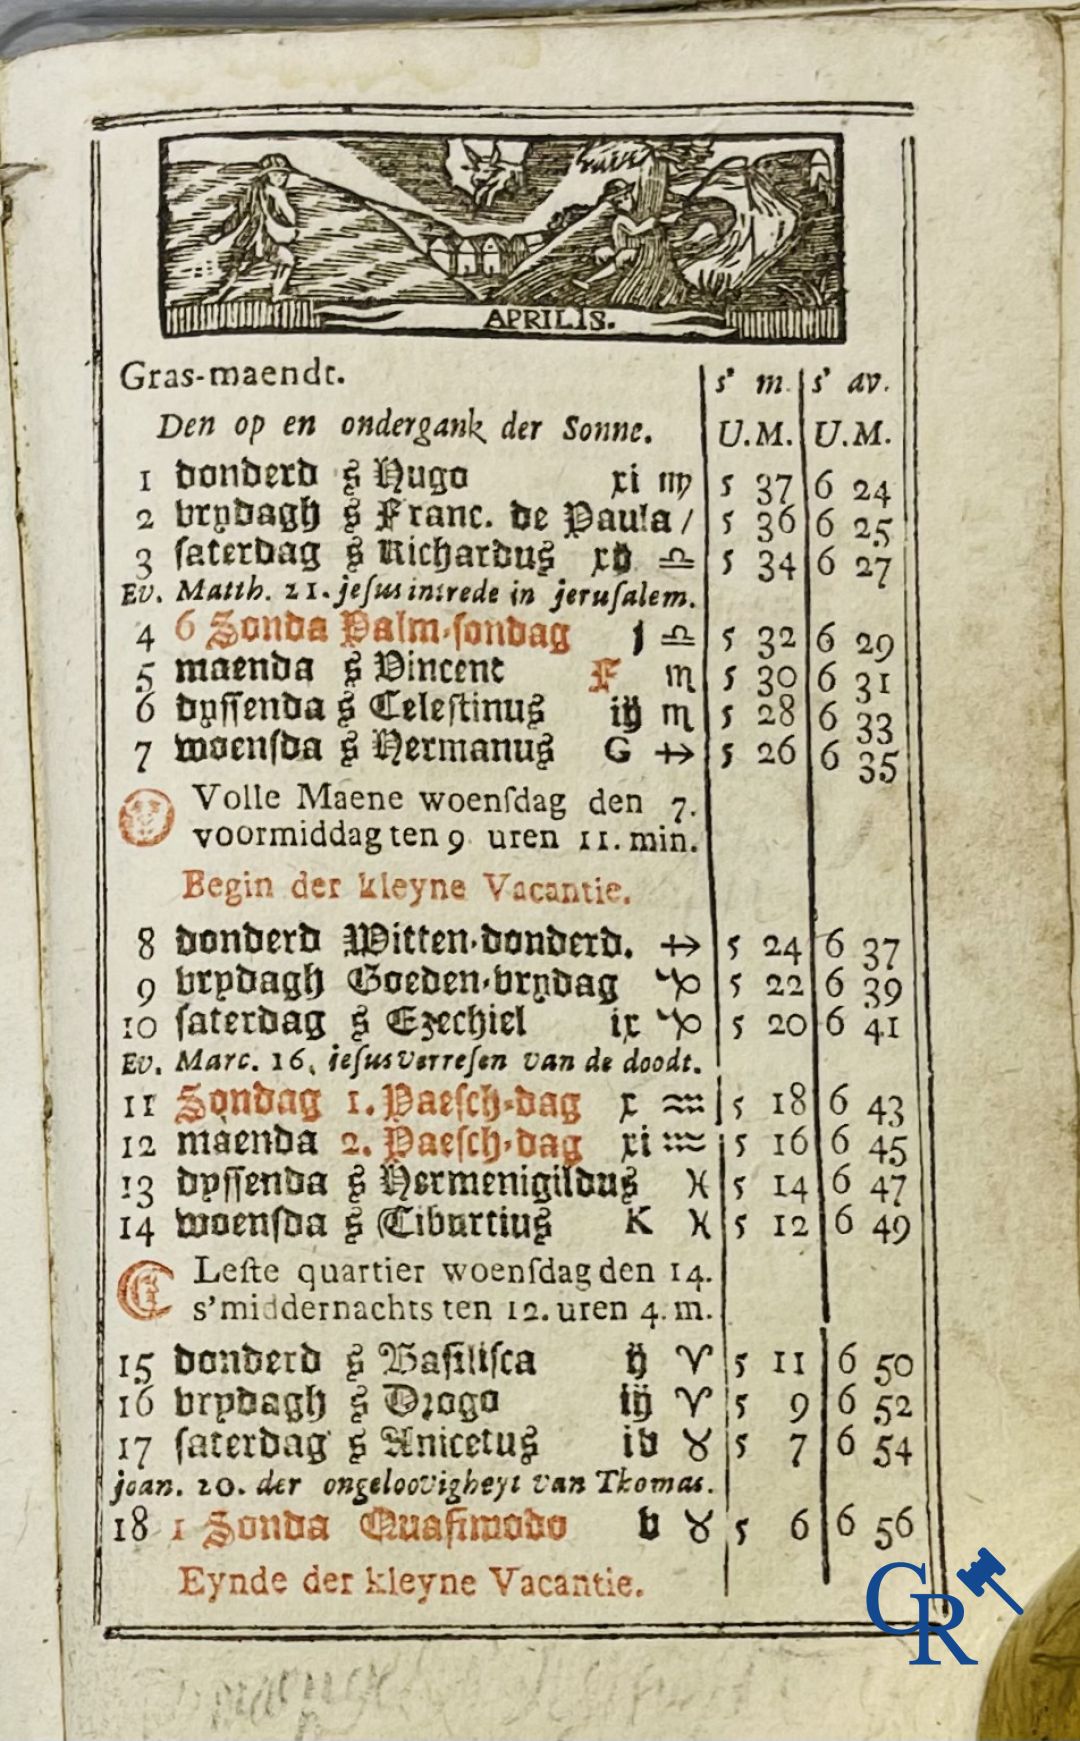 APRILIS.
Gras-maendt. s' m. s' av.
Den op en ondergank der Sonne. U.M. U.M.
1 donderd s Hugo xi ♍ 5 37 6 24
2 vrydagh s Franc. de Paula / 5 36 6 25
3 saterdag s Richardus xv ♎ 5 34 6 27
Ev. Matth. 21. jesus intrede in jerusalem.
4 6 Sonda Palm-sondag j ♎ 5 32 6 29
5 maenda s Vincent F ♏ 5 30 6 31
6 dyssenda s Celestinus iij ♏ 5 28 6 33
7 woensda s Hermanus G ♐ 5 26 6 35
Volle Maene woensdag den 7.
voormiddag ten 9 uren 11. min.
Begin der kleyne Vacantie.
8 donderd Witten-donderd. ♐ 5 24 6 37
9 vrydagh Goeden-vrydag ♑ 5 22 6 39
10 saterdag s Ezechiel ix ♑ 5 20 6 41
Ev. Marc. 16, jesus verresen van de doodt.
11 Sondag 1. Paesch-dag x ♒ 5 18 6 43
12 maenda 2. Paesch-dag xi ♒ 5 16 6 45
13 dyssenda s Hermenigildus ♓ 5 14 6 47
14 woensda s Tiburtius K ♓ 5 12 6 49
Leste quartier woensdag den 14.
s'middernachts ten 12. uren 4. m.
15 donderd s Basilisca ij ♈ 5 11 6 50
16 vrydagh s Drogo iij ♈ 5 9 6 52
17 saterdag s Anicetus iv ♉ 5 7 6 54
joan. 20. der ongeloovigheyt van Thomas.
18 1 Sonda Quasimodo v ♉ 5 6 6 56
Eynde der kleyne Vacantie.
CR